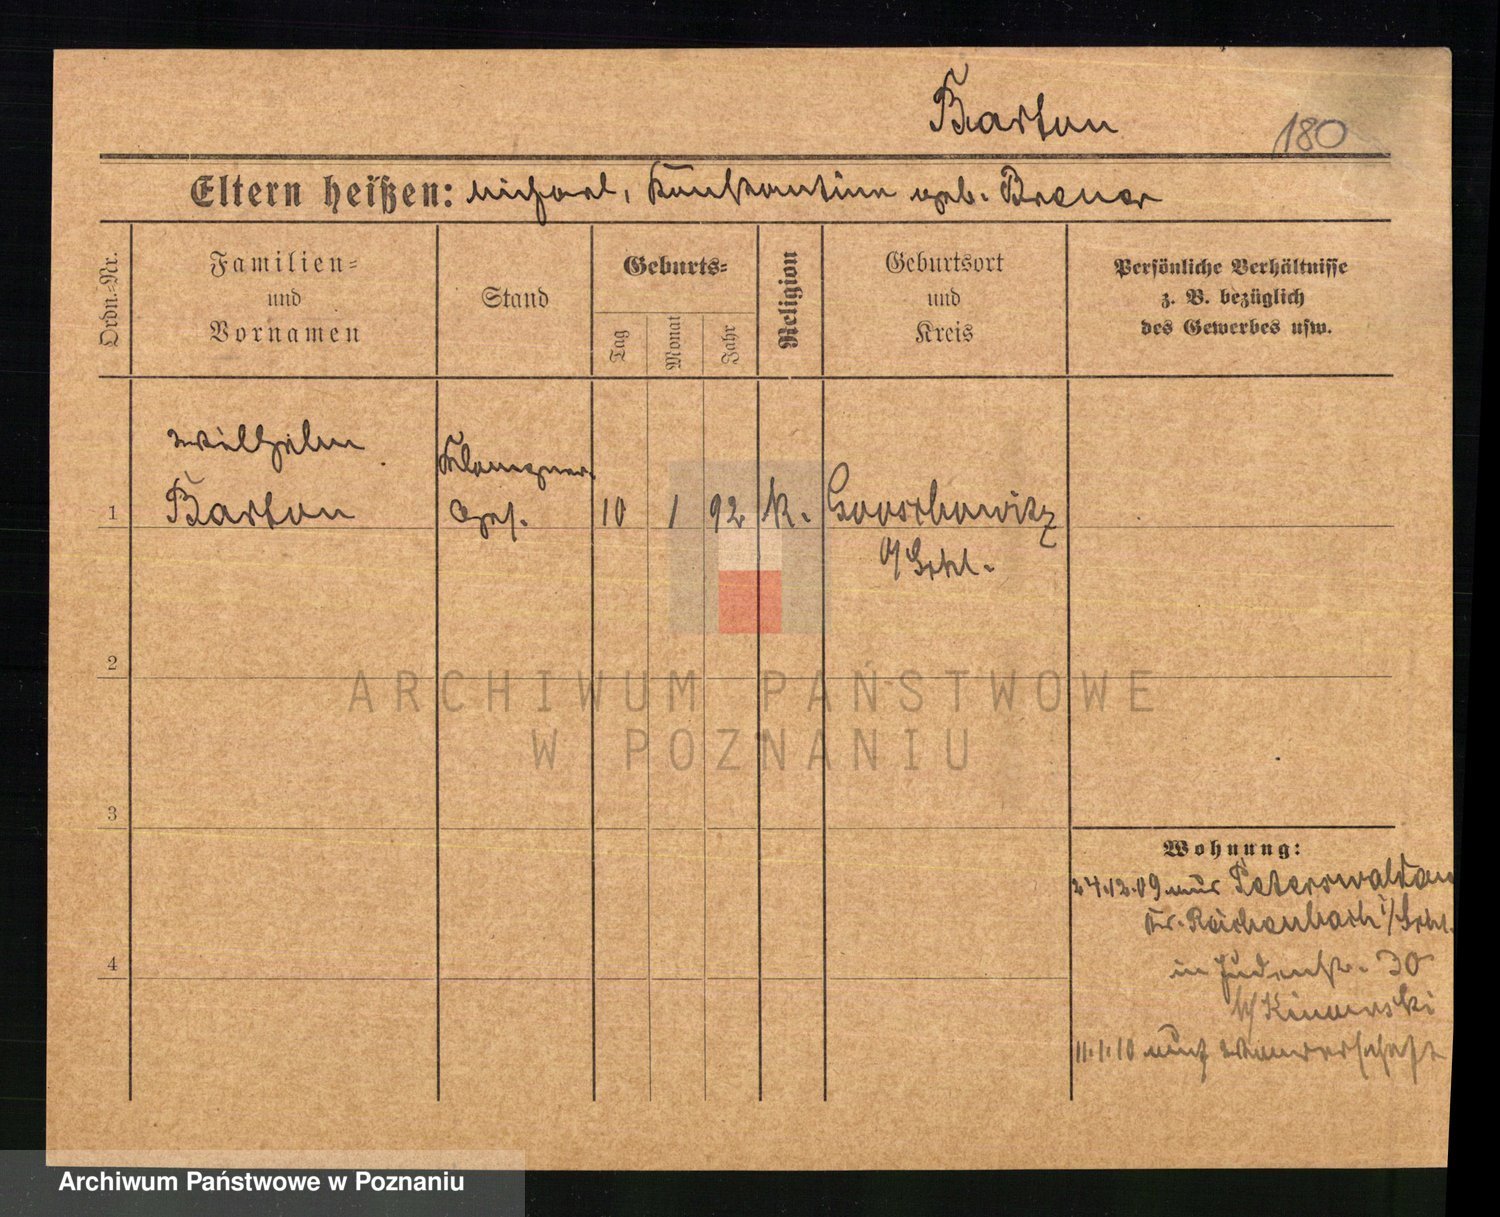 Barton
180
Eltern heißen: Michael, Konstantine geb. Brener
Ordn.-Nr.
Familien=
und
Vornamen
Stand
Geburts=
Tag
Monat
Jahr
Religion
Geburtsort
und
Kreis
Persönliche Verhältnisse
z. B. bezüglich
des Gewerbes usw.
Wilhelm
Barton
Klempner
Ges.
1
10
1
92
k.
O/Schl.
2
ARCHIWUM PAŃSTWOWE
W POZNANIU
3
4
Wohnung:
24.12.09 aus Peterswaldau
Kr. Reichenbach i/Schl.
in Judenstr. 30
b/
11.1.10 auf Wanderschaft
Archiwum Państwowe w Poznaniu